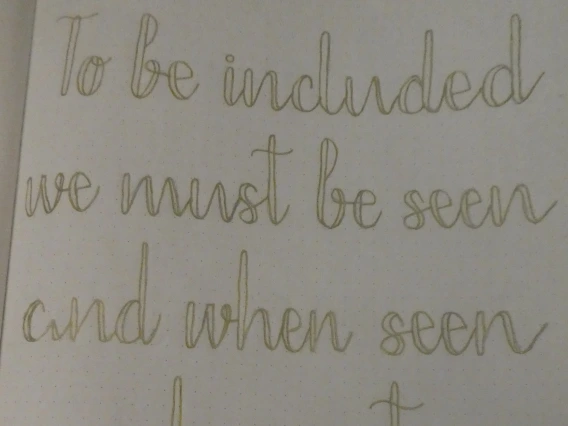 To be included
we must be seen
and when seen